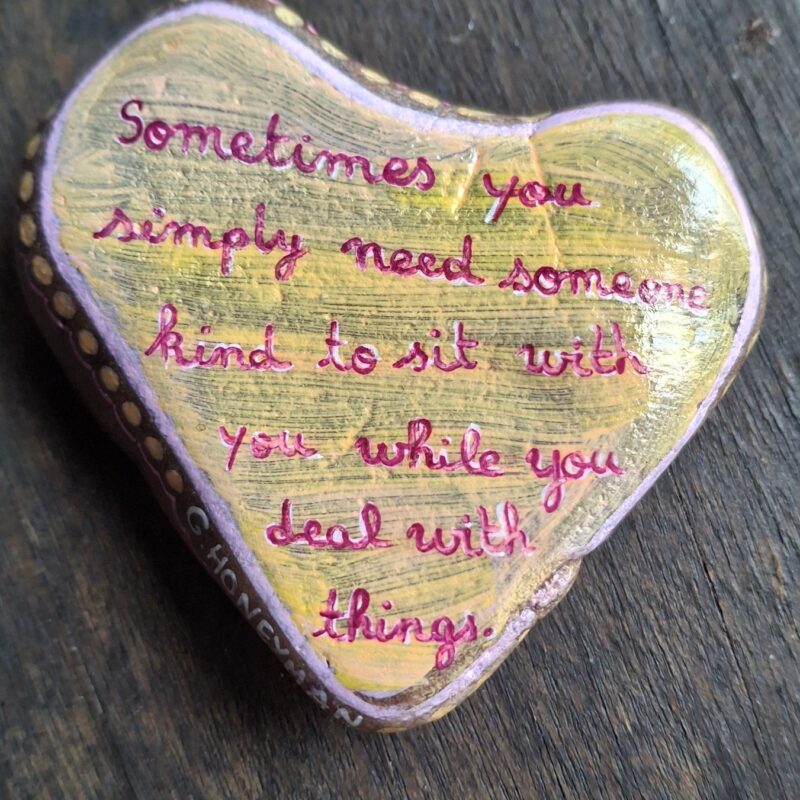 Sometimes you
simply need someone
kind to sit with
you while you
deal with
things.
G. HONEYMAN